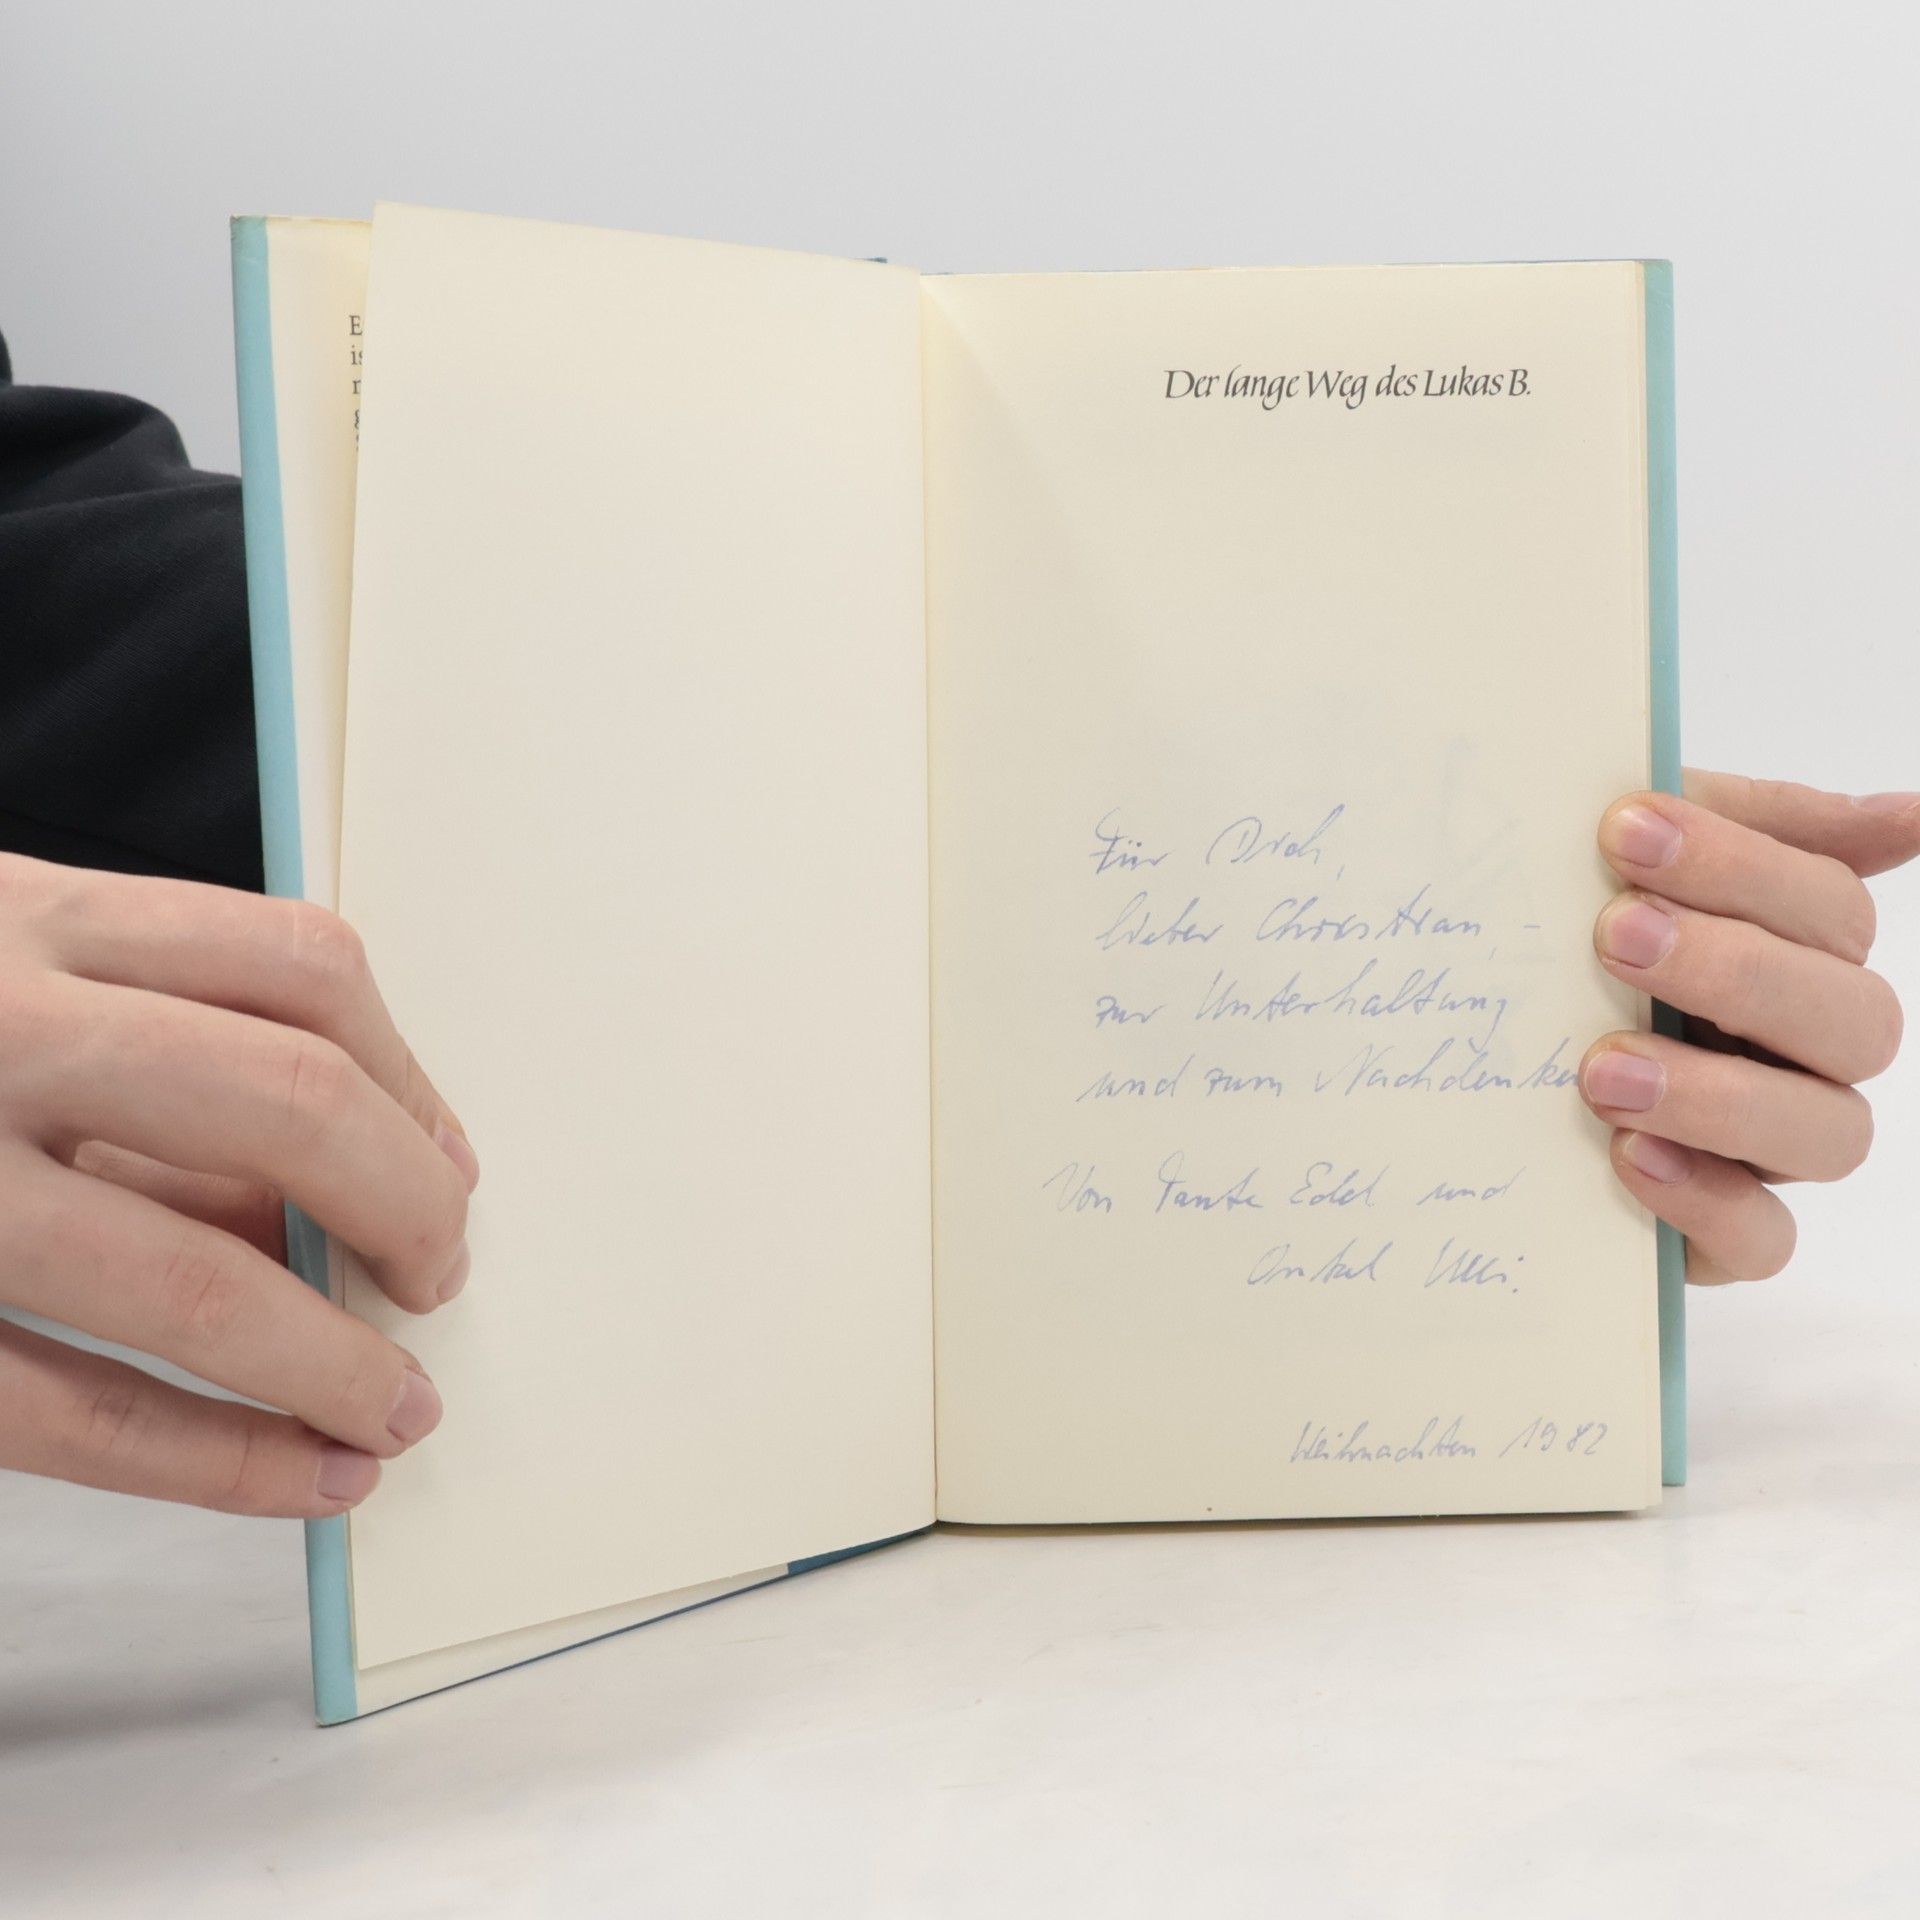 E
is
Der lange Weg des Lukas B.
Für Dich,
lieber Christian, -
zur Unterhaltung
und zum Nachdenken
Von Tante Edel und
Onkel Ulli.
Weihnachten 1982